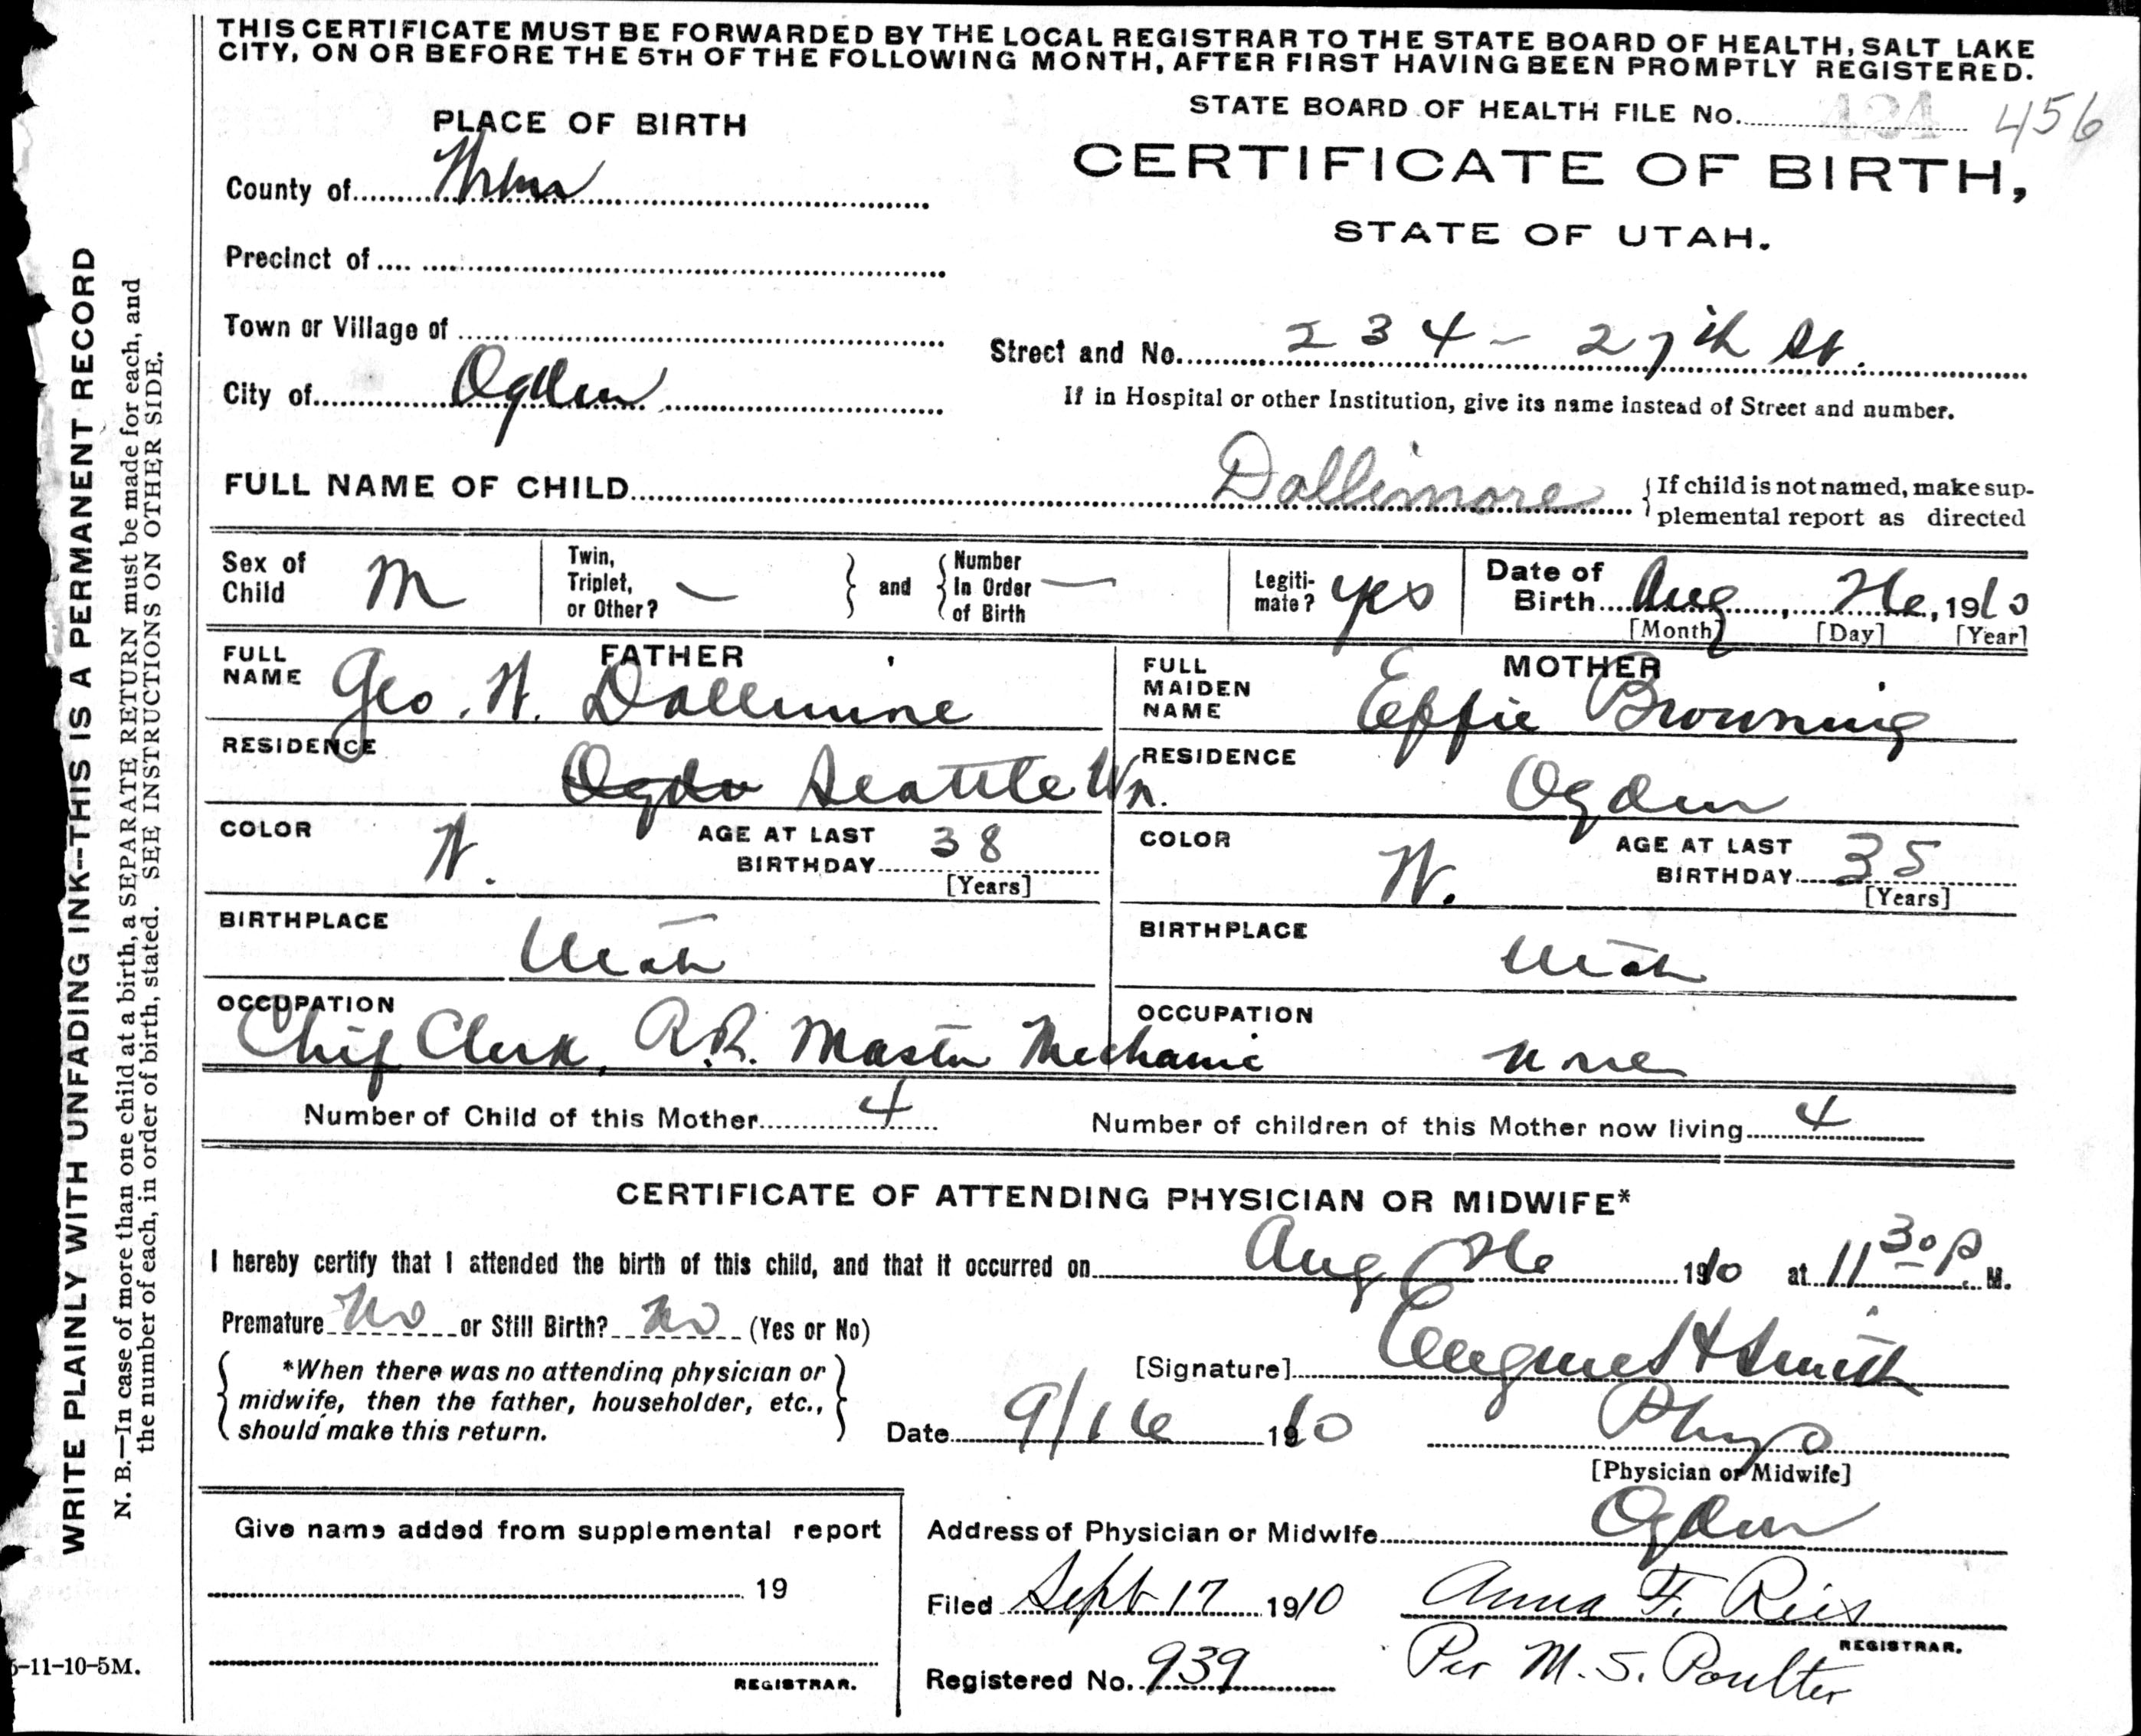 THIS CERTIFICATE MUST BE FORWARDED BY THE LOCAL REGISTRAR TO THE STATE BOARD OF HEALTH, SALT LAKE
CITY, ON OR BEFORE THE 5TH OF THE FOLLOWING MONTH, AFTER FIRST HAVING BEEN PROMPTLY REGISTERED.
STATE BOARD OF HEALTH FILE No. 456
PLACE OF BIRTH
CERTIFICATE OF BIRTH,
STATE OF UTAH.
County of
Precinct of
Town or Village of
Street and No. 234 - 27th St.
City of Ogden
If in Hospital or other Institution, give its name instead of Street and number.
FULL NAME OF CHILD Dallimore
{ If child is not named, make sup-
plemental report as directed
Sex of Child M
Twin, Triplet, or Other? — } and { Number In Order of Birth —
Legiti-mate? yes
Date of Birth Aug, 26, 1910
[Month] [Day] [Year]
FATHER
FULL NAME Geo. W. Dallimore
RESIDENCE Ogden Seattle Wn.
COLOR W. AGE AT LAST BIRTHDAY 38
[Years]
BIRTHPLACE Utah
OCCUPATION Chief Clerk, R.R. Master Mechanic
MOTHER
FULL MAIDEN NAME Effie Browning
RESIDENCE Ogden
COLOR W. AGE AT LAST BIRTHDAY 35
[Years]
BIRTHPLACE Utah
OCCUPATION None
Number of Child of this Mother 4 Number of children of this Mother now living 4
CERTIFICATE OF ATTENDING PHYSICIAN OR MIDWIFE*
I hereby certify that I attended the birth of this child, and that it occurred on Aug 26 1910 at 11 30 P. M.
Premature No or Still Birth? No (Yes or No)
{ *When there was no attending physician or
midwife, then the father, householder, etc.,
should make this return. }
[Signature] H Smith
Date 9/16 1910 Phys
[Physician or Midwife]
Give name added from supplemental report
19
REGISTRAR.
Address of Physician or Midwife Ogden
Filed Sept 17 1910 Anna F. Reis
REGISTRAR.
Registered No. 939 Per M. S. Poulter
WRITE PLAINLY WITH UNFADING INK--THIS IS A PERMANENT RECORD
N. B.—In case of more than one child at a birth, a SEPARATE RETURN must be made for each, and
the number of each, in order of birth, stated. SEE INSTRUCTIONS ON OTHER SIDE.
-11-10-5M.